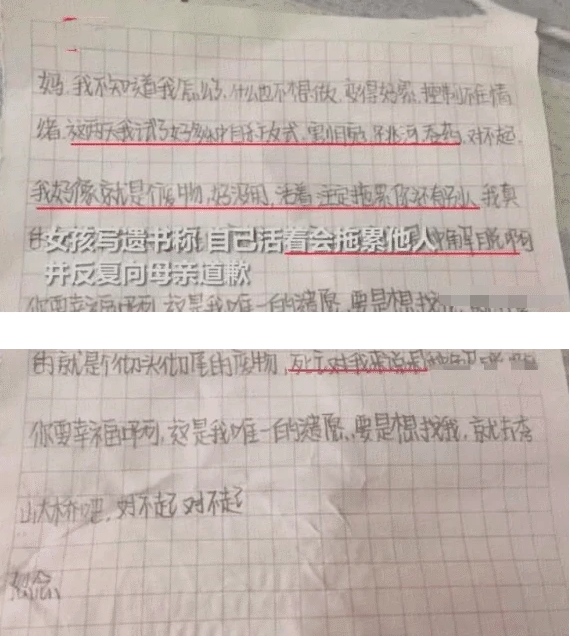 妈,我不知道我怎么了,什么也不想做,变得好累,控制不住情
绪,这两天我试了好多种自杀方式,割腕,跳河吞药,对不起,
我好像就是个废物,好没用,活着注定拖累你还有别人我真
的 解脱啊
女孩写遗书称 自己活着会拖累他人
并反复向母亲道歉
你要幸福啊,这是我唯一的遗愿,要是想找
的就是个彻头彻尾的废物,死亡对我来说是
你要幸福啊,这是我唯一的遗愿,要是想找我,就去
山大桥吧,对不起 对不起